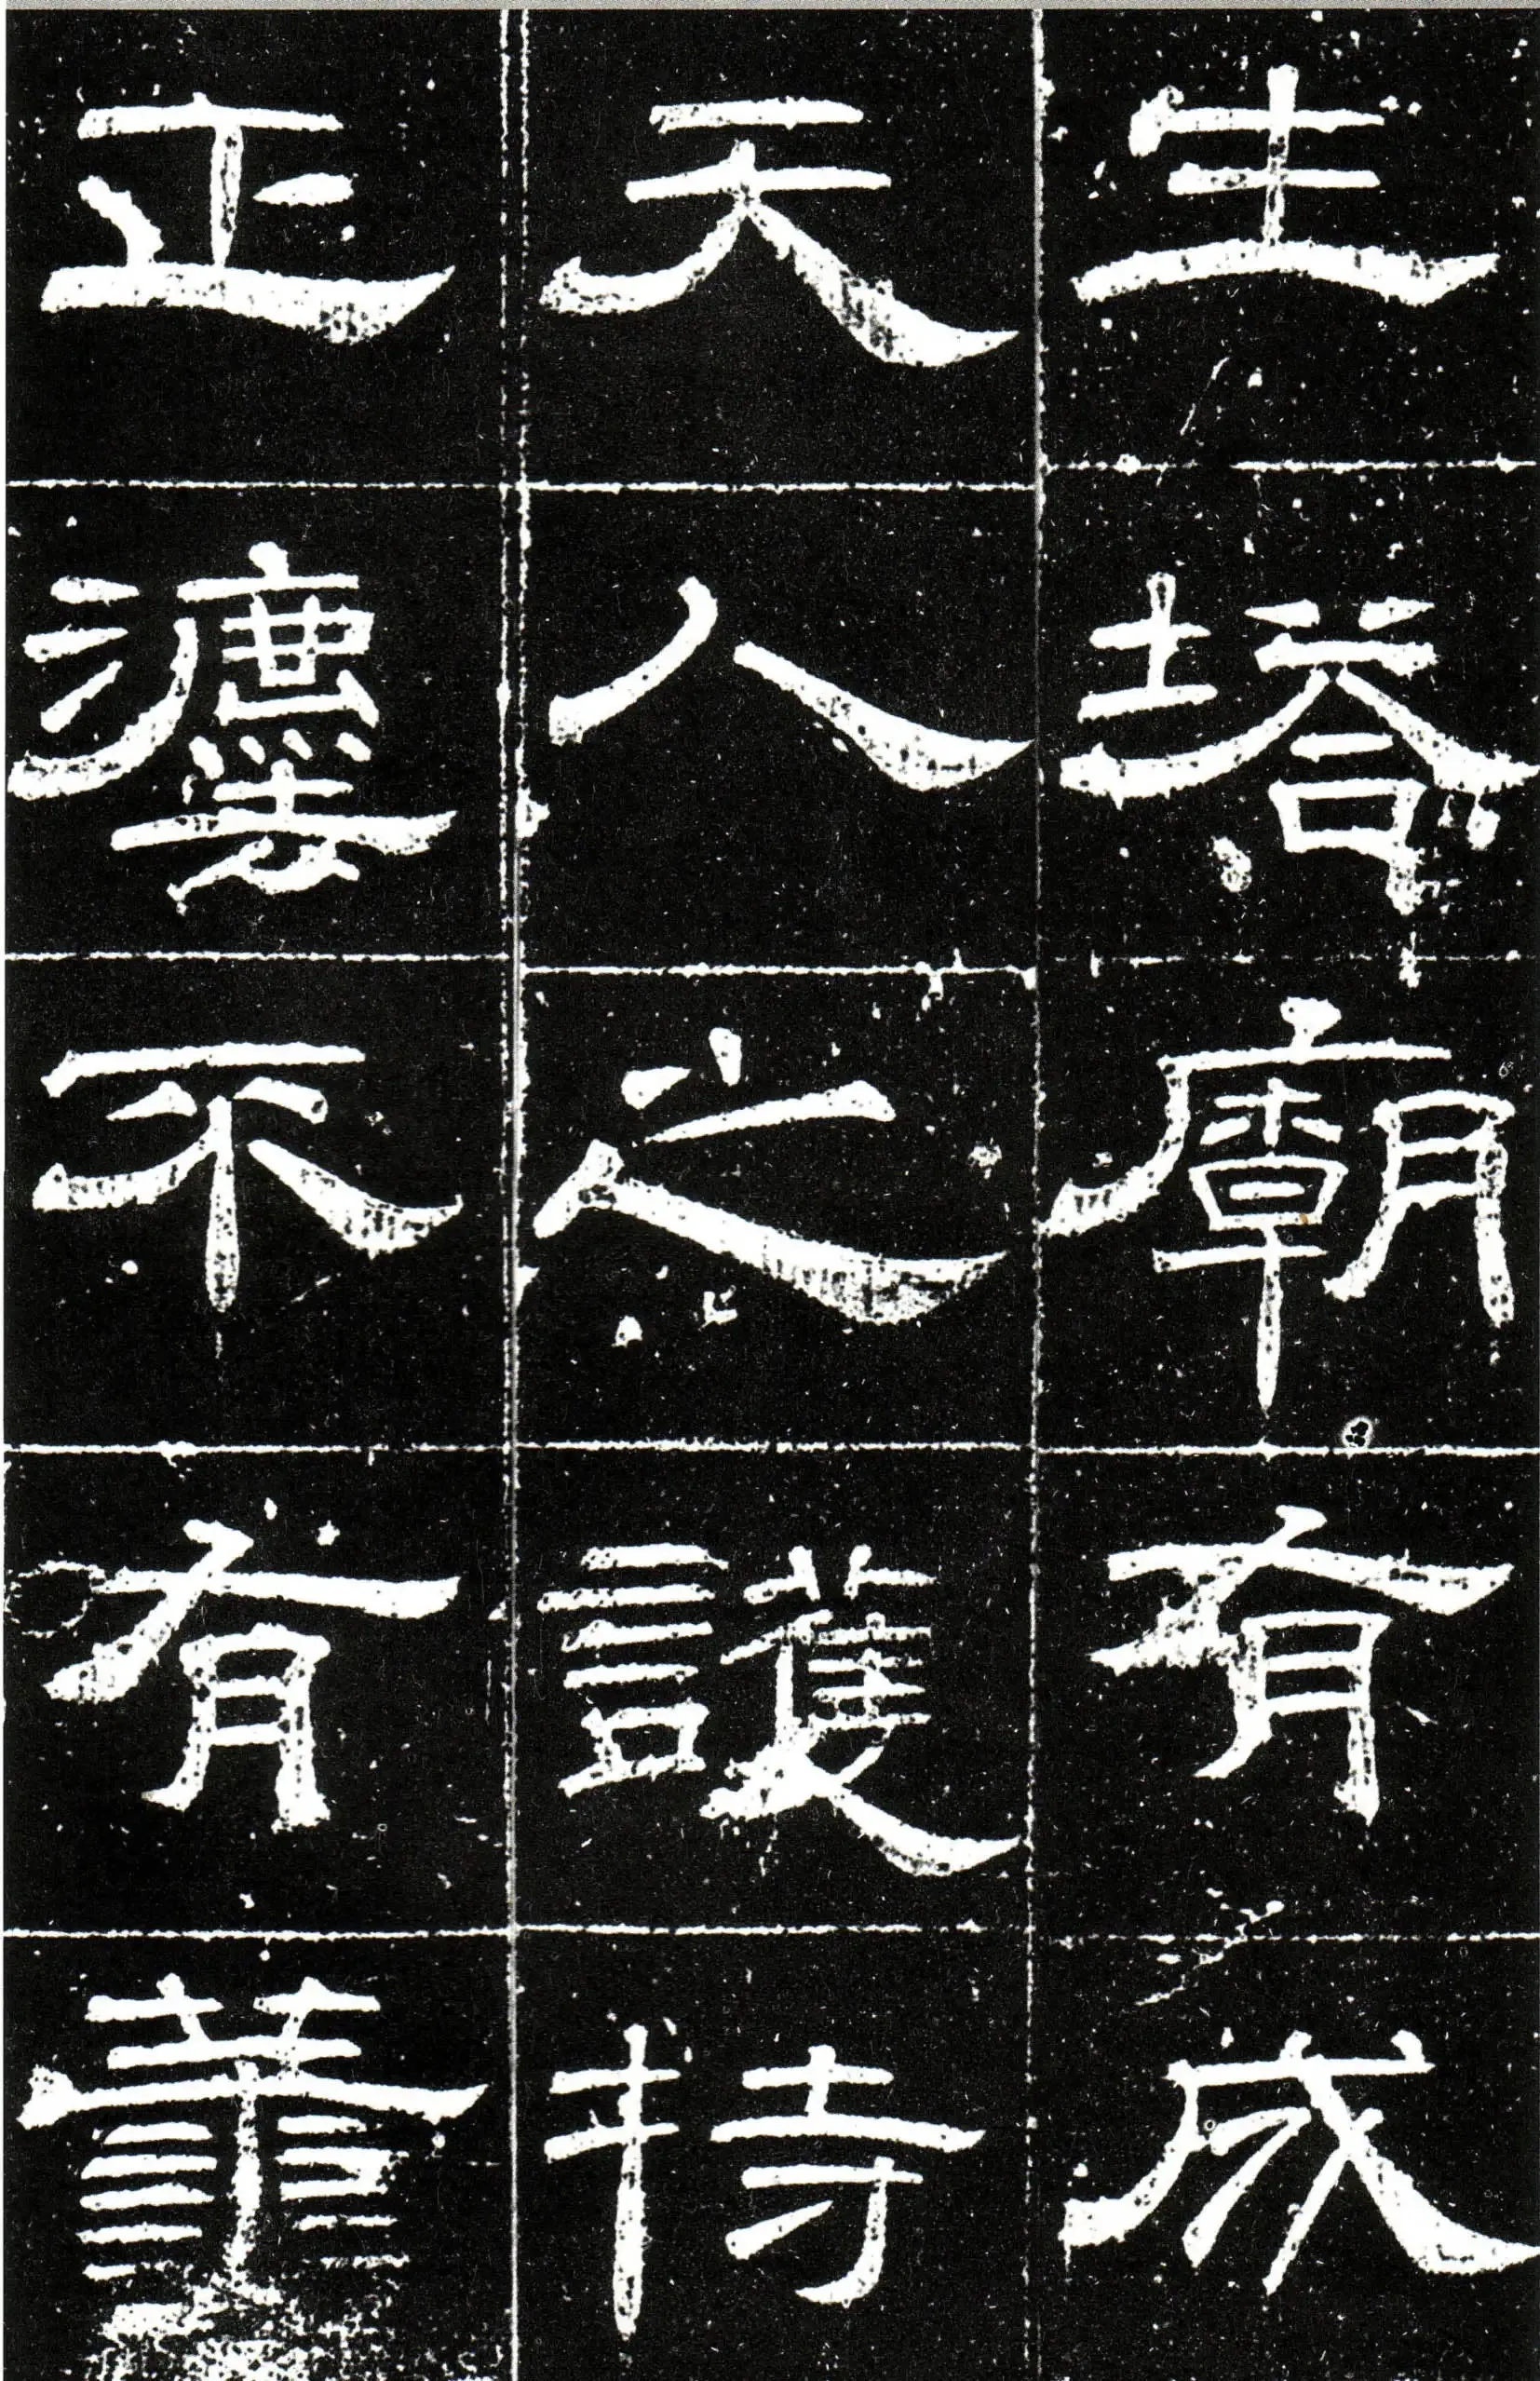 生塔廟有成
天人之護持
正灋不有